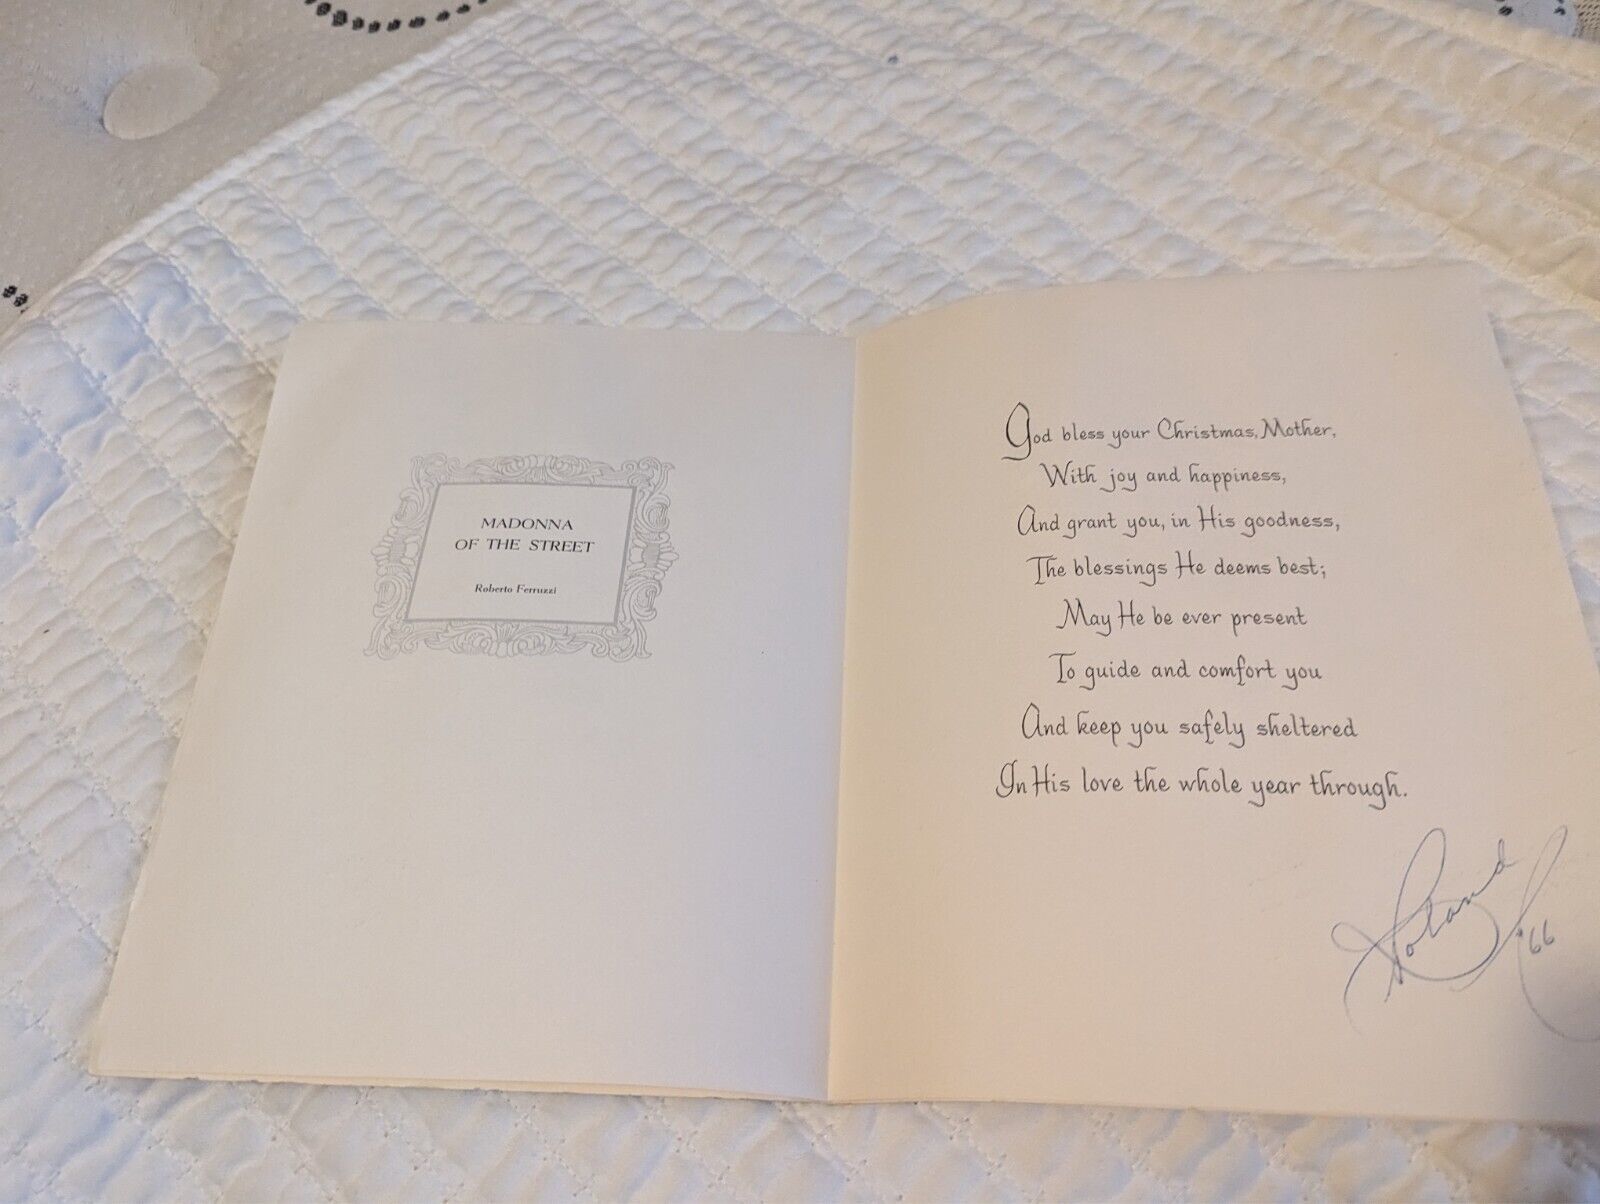 MADONNA
OF THE STREET
Roberto Ferruzzi
God bless your Christmas, Mother,
With joy and happiness,
And grant you, in His goodness,
The blessings He deems best;
May He be ever present
To guide and comfort you
And keep you safely sheltered
In His love the whole year through.
Roland
'66